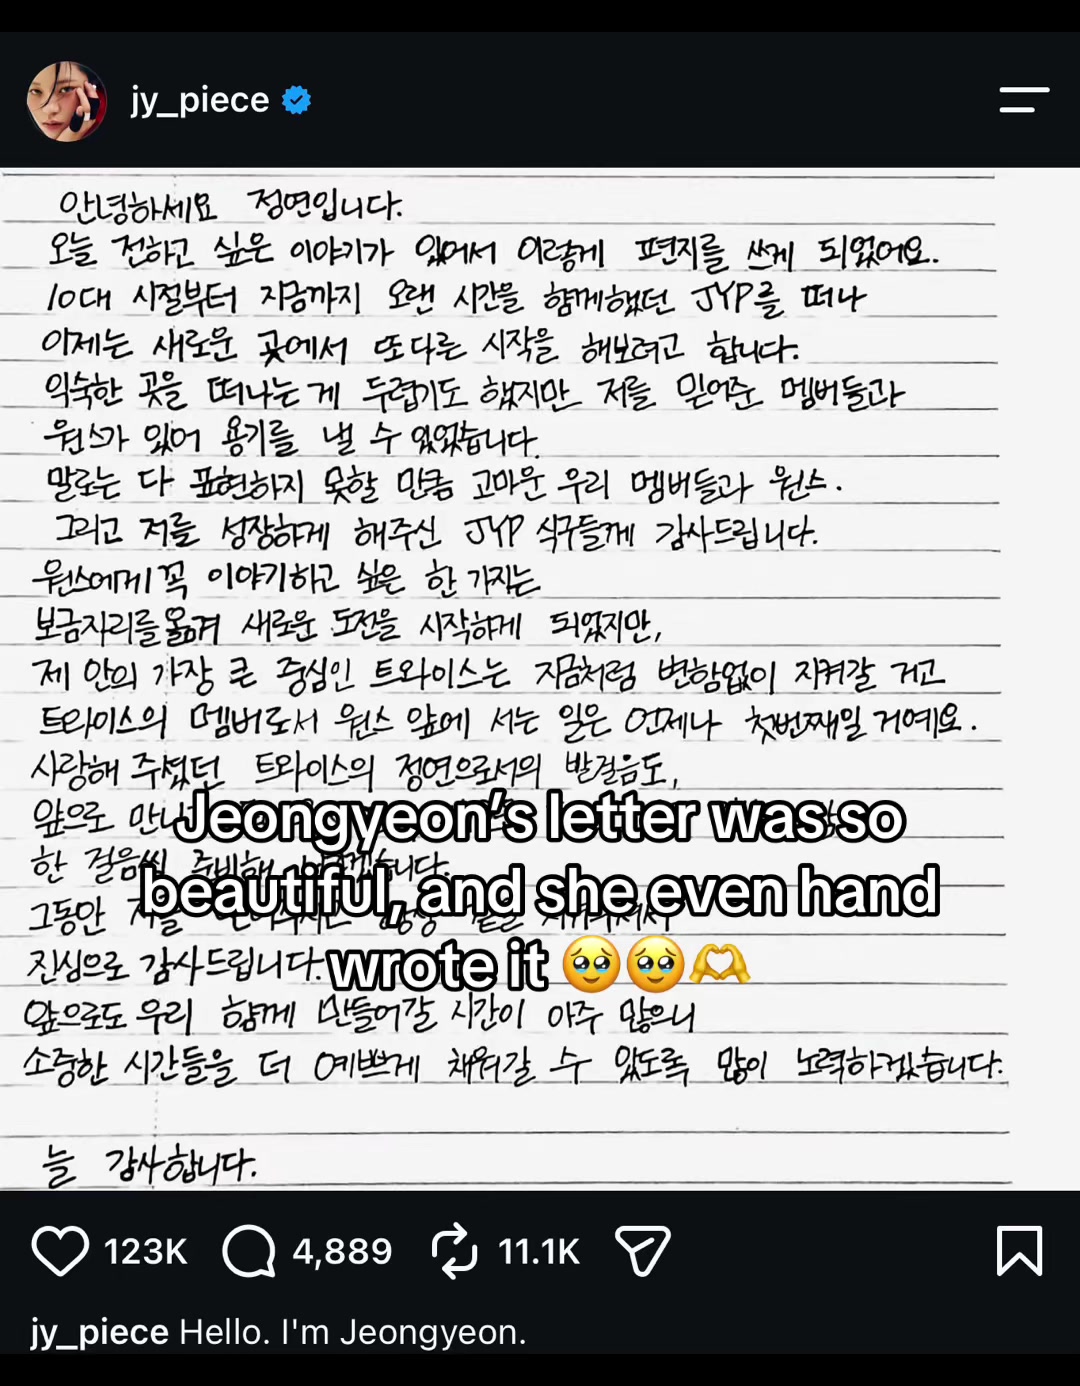 jy_piece
안녕하세요 정연입니다.
오늘 전하고 싶은 이야기가 있어서 이렇게 편지를 쓰게 되었어요.
10대 시절부터 지금까지 오랜 시간을 함께했던 JYP를 떠나
이제는 새로운 곳에서 또다른 시작을 해보려고 합니다.
익숙한 곳을 떠나는게 두렵기도 했지만 저를 믿어준 멤버들과
원스가 있어 용기를 낼 수 있었습니다.
말로는 다 표현하지 못할 만큼 고마운 우리 멤버들과 원스.
그리고 저를 성장하게 해주신 JYP 식구들께 감사드립니다.
원스에게 꼭 이야기하고 싶은 한 가지는
보금자리를 옮겨 새로운 도전을 시작하게 되었지만,
제 안의 가장 큰 중심인 트와이스는 지금처럼 변함없이 지켜갈 거고
트와이스의 멤버로서 원스 앞에 서는 일은 언제나 첫번째일 거예요.
사랑해 주셨던 트와이스의 정연으로서의 발걸음도,
앞으로
한 걸음씩 준비해
그동안
진심으로 감사드립니다.
앞으로도 우리 함께 만들어갈 시간이 아주 많으니
소중한 시간들을 더 예쁘게 채워갈 수 있도록 많이 노력하겠습니다.
늘 감사합니다.
Jeongyeon's letter was so
beautiful, and she even hand
wrote it 🥹🥹🫶
123K 4,889 11.1K
jy_piece Hello. I'm Jeongyeon.